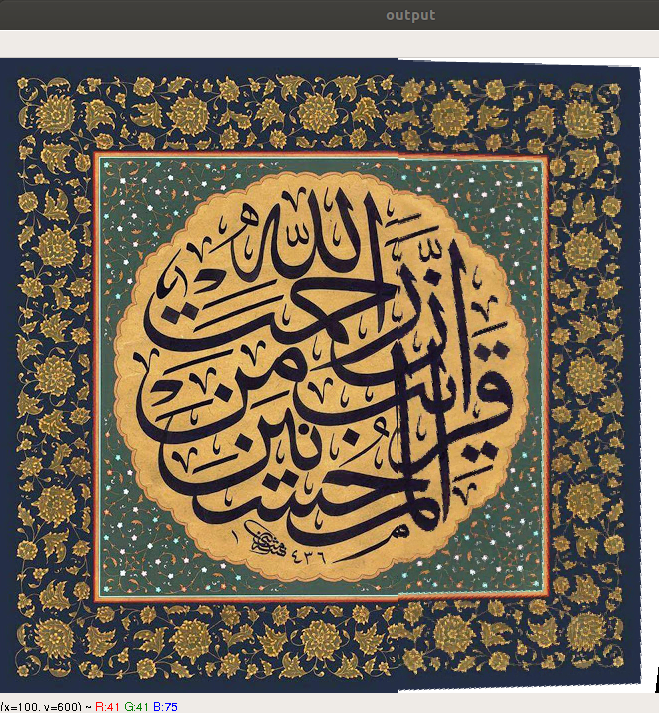 output
إنّ رحمت الله قريب من المحسنين
١٤٣٦
(x=100, y=600) ~ R:41 G:41 B:75